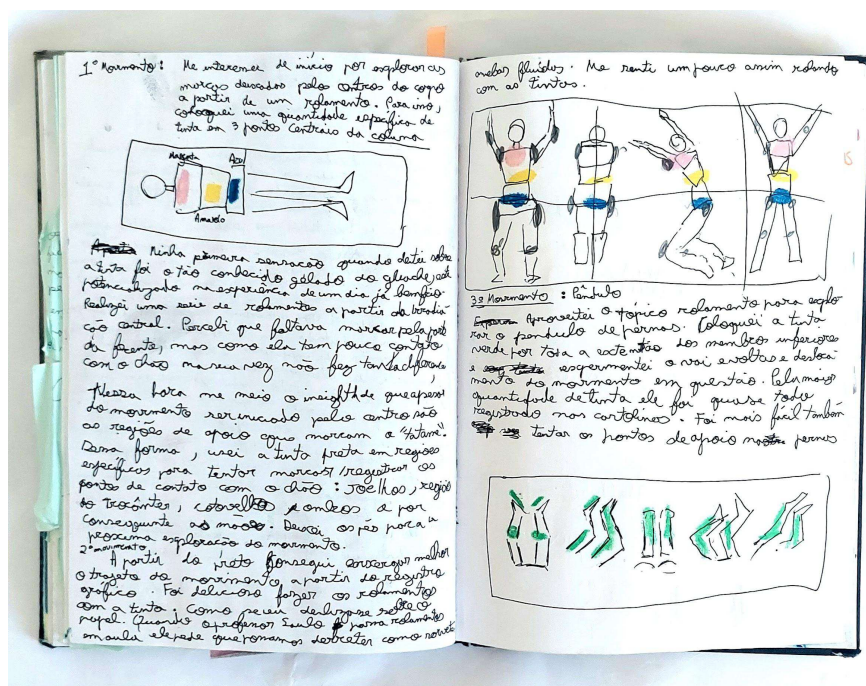 1º Movimento: Me interessei de início por explorar as
marcas deixadas pelos centros do corpo
a partir de um rolamento. Para isso,
coloquei uma quantidade específica de
tinta em 3 pontos centrais da coluna
Magenta
Azul
Amarelo
Minha primeira sensação quando deitei sobre
a tinta foi o tão conhecido gelado do guache,
potencializado na experiência de um dia já
Realizei uma serie de rolamentos a partir da irradia
ção central. Percebi que faltava marcar pela parte
da frente, mas como ela tem pouco contato
com o chão por sua vez não fez tanta diferença
Nessa hora me veio o insight de que apesar
do movimento ser iniciado pelo centro são
as regiões de apoio que marcam o "tatame".
Dessa forma, usei a tinta preta em regiões
específicas para tentar marcar/registrar os
pontos de contato com o chão: joelhos, região
do trocânter, cotovelho, ombros e por
conseguinte as mãos. Deixei os pés para a
proxima exploração do movimento.
2º movimento
A partir do preto consegui enxergar melhor
o trajeto do movimento a partir do registro
gráfico. Foi delicioso fazer os rolamentos
com a tinta. Como se eu deslizasse sobre o
papel. Quando o professor Saulo passa rolamentos
em aula ele pede que possamos derreter como sorvete
fluidos. Me senti um pouco assim rolando
com as tintas.
3º Movimento: Pêndulo
Aproveitei o tópico rolamento para explo
rar o pendulo de pernas. Coloquei a tinta
verde por toda a extensão dos membros inferiores
e experimentei o vai e volta e desloca
mento do movimento em questão. Pela maior
quantidade de tinta ele foi quase todo
registrado nas cartolinas. Foi mais fácil também
tentar os pontos de apoio nas pernas